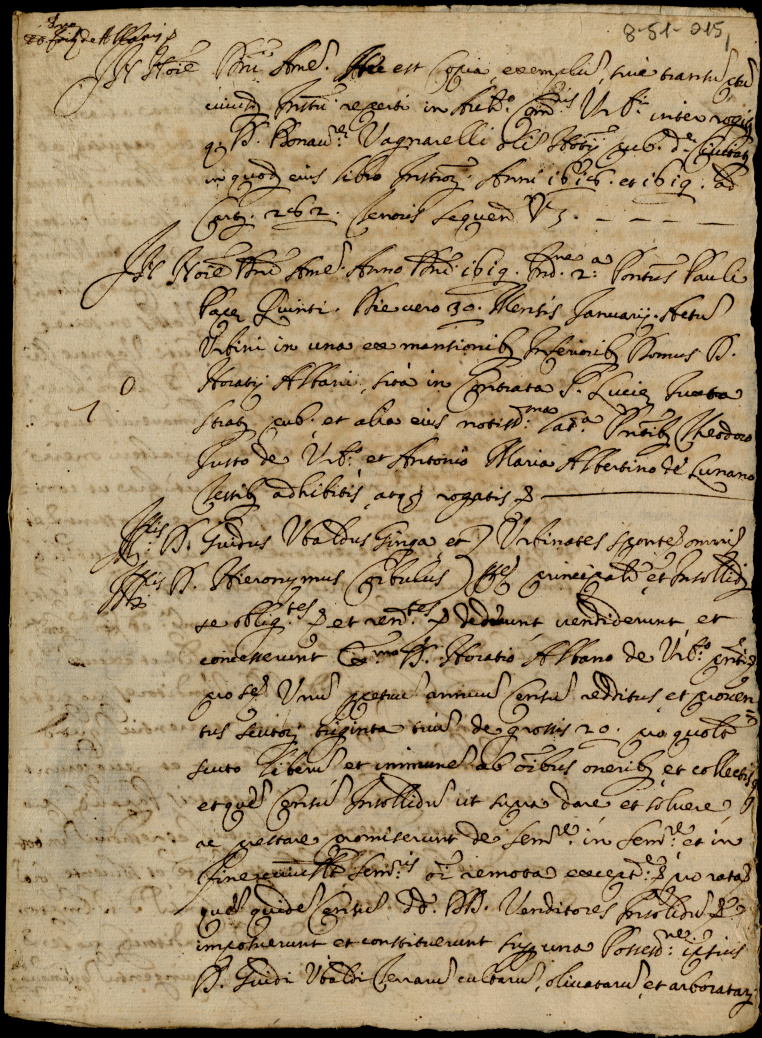 8-51-015
In Noīē Dnī Amē. Hic est Copia, exemplū, sive transūptū
cuiusd Instrī reperti in Archº Urbī inter rogit
q D. Bonavrē Vagnarelli olī Notȳ pub. de Civitatē
in quodā eius libro Instrōr. Anni 1618. et 1619. ad
Cart. 262. tenoris sequend. V3.
In Noīē Dnī Amē. Anno Dnī 1619. Indne 2a Pontūs Pauli
Papę Quinti. Die vero 30. Mensis Januarij. Actū
Urbini in una ex mansionibȝ Inferioribȝ Domus D.
Horatij Albani, sita in Contrata S. Lucię Iuxta
strat pub. et alia eius notissma latra Pntibȝ Theodoro
Justo de Urbº et Antonio Maria Albertino de Lunano
Testibȝ adhibitis, atqȝ rogatis
D. Guidus Ubaldus Ginga et Urbinates sponte omni
D. Hieronymus Cibulus principalr et Insolidū
se obligtes et rendtes dederunt, vendiderunt, et
concesserunt D. Horatio Albano de Urbº pnti
pro se Unū ppetuū annuū Censū redditus et proven
tus scutorȝ triginta triū de grossis 20. pro quolt
scuto liberū et immunē ab oībus oneribȝ et collectis
et quē Censū Insolidū ut supra dare et solvere
ac prestare promiserunt de Semre in Semre et in
fine cuiuslt Semris oī remota exceptne pro rata
quē quidē Censū dd. DD. Venditores Insolidū
imposuerunt et constituerunt supȝ una Possessne ipsius
D. Guidi Ubaldi Terrarū cultarū, olivatarū et arboratarȝ